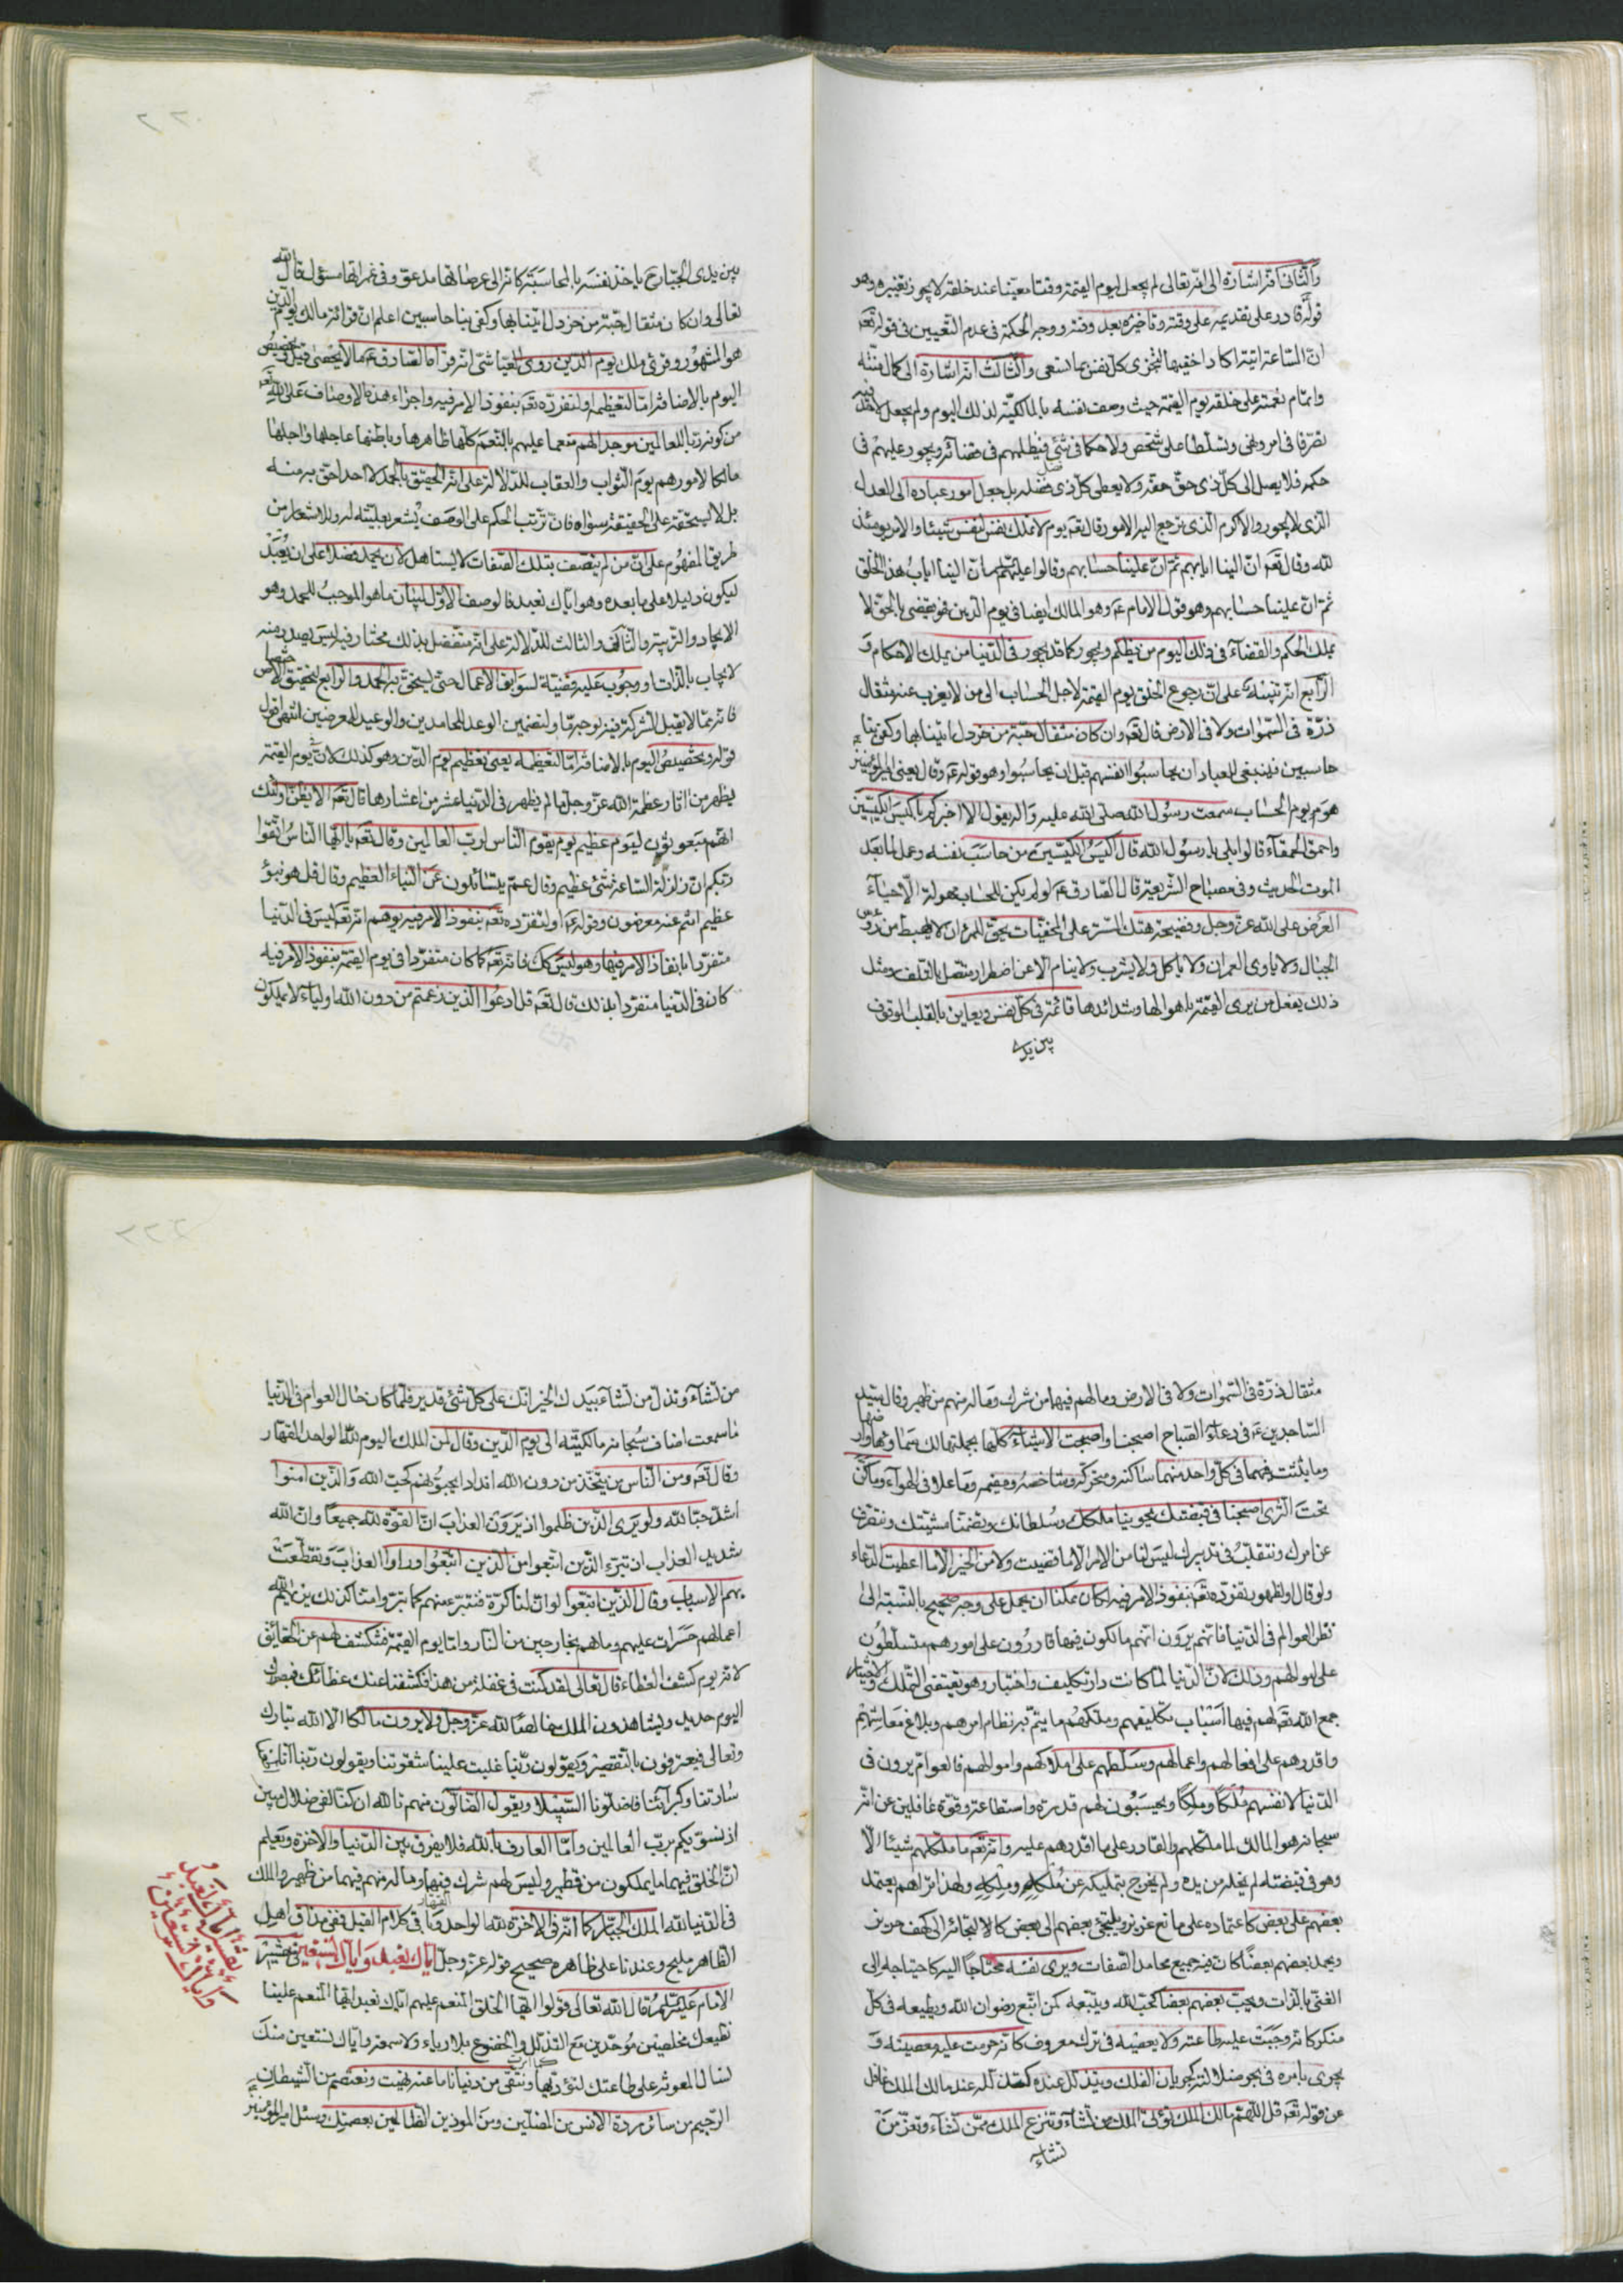 والثانی انه اشارة الی انه تعالی لم یجعل لیوم القیمة وقتا معینا عند خلقه لا یجوز تغییره وهو
قوله قادر علی تقدیمه علی وقته وتاخیره بعد وقته ووجه الحکمة فی عدم التعیین فی قوله تعه
ان الساعة اتیة اکاد اخفیها لتجزی کل نفس بما تسعی والثالث انه اشارة الی کمال منته
واتمام نعمته علی خلقه یوم القیمة حیث وصف نفسه بالمالکیة لذلک الیوم ولم یجعل لاحد فیه
تصرفا فی امر ونهی وتسلطا علی شخص ولا حکما فی شئ فیظلمهم فی قضائه ویجور علیهم فی
حکمه فلا یصل الی کل ذی حق حقه ولا یعطی کل ذی فضل فضله بل جعل امور عباده الی العدل
الذی لا یجور والاکرم الذی ترجع الیه الامور قال تعه یوم لا تملک نفس لنفس شیئا والامر یومئذ
لله وقال تعه ان الینا ایابهم ثم ان علینا حسابهم وقالوا علیهم السلام ان الینا ایاب هذا الخلق
ثم ان علینا حسابهم وهو قول الامام عه وهو المالک ایضا فی یوم الدین فهو یقضی بالحق لا
یملک الحکم والقضاء فی ذلک الیوم من یظلم ویجور کما قد یجور فی الدنیا من یملک الاحکام و
الرابع انه تنبیه علی ان رجوع الخلق یوم القیمة لاجل الحساب الی من لا یعزب عنه مثقال
ذرة فی السموات ولا فی الارض قال تعه وان کان مثقال حبة من خردل اتینا بها وکفی بنا
حاسبین فینبغی للعباد ان یحاسبوا انفسهم قبل ان یحاسبوا وهو قوله عه وقال یعنی امیر المؤمنین عه
هو یوم الحساب سمعت رسول الله صلی الله علیه واله یقول الا اخبرکم باکیس الکیسین
واحمق الحمقآء قالوا بلی یا رسول الله قال اکیس الکیسین من حاسب نفسه وعمل لما بعد
الموت الحدیث وفی مصباح الشریعة قال الصادق عه لو لم یکن للحساب مهولة الا حیآء
العرض علی الله عز وجل وفضیحة هتک الستر علی المخفیات یحق للمرء ان لا یهبط من رؤس
الجبال ولا یاوی العمران ولا یاکل ولا یشرب ولا ینام الا عن اضطرار متصل بالتلف ومثل
ذلک یفعل من یری القیمة باهوالها وشدائدها قائمة فی کل نفس ویعاین بالقلب الوقوف
بین یدی
بین یدی الجبار ح یاخذ نفسه بالمحاسبة کانه الی عرصاتها مدعو وفی غمراتها مسؤل قال الله
تعالی وان کان مثقال حبة من خردل اتینا بها وکفی بنا حاسبین اعلم ان قرائة مالک یوم الدین
هو المشهور وقرئ ملک یوم الدین روی العیاشی انه قرأه الصادق عه ما لا یحصی قیل وتخصیص
الیوم بالاضافة اما لتعظیمه او لتفرده تعه بنفوذ الامر فیه واجراء هذه الاوصاف علی الله تعه
من کونه ربا للعالمین موجدا لهم منعما علیهم بالنعم کلها ظاهرها وباطنها عاجلها واجلها
مالکا لامورهم یوم الثواب والعقاب للدلالة علی انه الحقیق بالحمد لا احد احق به منه
بل لا یستحقه علی الحقیقة سواه فان ترتب الحکم علی الوصف یشعر بعلیته له وللاشعار من
طریق المفهوم علی ان من لم یتصف بتلک الصفات لا یستاهل لان یحمد فضلا علی ان یعبد
لیکون دلیلا علی ما بعده وهو ایاک نعبد فالوصف الاول لبیان ما هو الموجب للحمد وهو
الایجاد والتربیة والثانی والثالث للدلالة علی انه متفضل بذلک مختار فیه لیس یصدر منه
لایجاب بالذات او وجوب علیه قضیة لسوابق الاعمال حتی یستحق به الحمد والرابع لتحقیق الاختصاص
فانه مما لا یقبل الشرکة فیه بوجه ما وتضمین الوعد للحامدین والوعید للمعرضین انتهی اقول
قوله وتخصیص الیوم بالاضافة اما لتعظیمه یعنی تعظیم یوم الدین وهو کذلک لان یوم القیمة
یظهر من اثار عظمة الله عز وجل ما لم یظهر فی الدنیا عشر من اعشارها قال تعه الا یظن اولئک
انهم مبعوثون لیوم عظیم یوم یقوم الناس لرب العالمین وقال تعه یا ایها الناس اتقوا
ربکم ان زلزلة الساعة شئ عظیم وقال عم یتسائلون عن النباء العظیم وقال قل هو نبؤ
عظیم انتم عنه معرضون وقوله عه او لتفرده تعه بنفوذ الامر فیه یوهم انه تعه لیس فی الدنیا
متفردا بانفاذ الامر فیها وهو لیس کک فانه تعه کما کان متفردا فی یوم القیمة بنفوذ الامر فیه
کان فی الدنیا متفردا بذلک قال تعه قل ادعوا الذین زعمتم من دون الله اولیاء لا یملکون
مثقال ذرة فی السموات ولا فی الارض وما لهم فیها من شرک وما له منهم من ظهیر وقال سید
الساجدین عه فی دعاء الصباح اصبحنا واصبحت الاشیاء کلها بجملتها لک سماؤها وارضها
وما بثثت فیهما فی کل واحد منهما ساکنه ومتحرکه وشاخصه ومقیمه وما علا فی الهواء وما کن
تحت الثری اصبحنا فی قبضتک یحوینا ملکک وسلطانک وتضمنا مشیتک ونتصرف
عن امرک ونتقلب فی تدبیرک لیس لنا من الامر الا ما قضیت ولا من الخیر الا ما اعطیت الدعاء
ولو قال او لظهور تفرده تعه بنفوذ الامر فیه لکان ممکنا ان یحمل علی وجه صحیح بالنسبة الی
نظر العوالم فی الدنیا فانهم یرون انهم مالکون فیها قادرون علی امورهم متسلطون
علی اموالهم وذلک لان الدنیا لما کانت دار تکلیف واختبار وهو یقتضی التملک والاختیار
جمع الله تعه لهم فیها اسباب تکلیفهم وملکهم ما یتم به نظام امرهم وبلاغ معاشهم
واقدرهم علی افعالهم واعمالهم وسلطهم علی املاکهم واموالهم فالعوام یرون فی
الدنیا لانفسهم ملکا وملکا ویحسبون لهم قدرة واستطاعة وقوة غافلین عن انه
سبحانه هو المالک لما ملکهم والقادر علی ما اقدرهم علیه وانه تعه ما ملکهم شیئا الا
وهو فی قبضته لم یخله من یده ولم یخرج بتملیکه عن ملکه وملکه ولهذا تراهم یعتمد
بعضهم علی بعض کاعتماده علی مانع عزیز ویلتجئ بعضهم الی بعض کالالتجائه الی کهف حریز
ویحمد بعضهم بعضا کان فیه جمیع محامد الصفات ویری نفسه محتاجا الیه کاحتیاجه الی
الغنی بالذات ویحب بعضهم بعضا کحب الله ویتبعه کمن اتبع رضوان الله ویطیعه فی کل
منکر کانه وجبت علیه طاعته ولا یعصیه فی ترک معروف کانه حرمت علیه معصیته و
یجری بامره فی بحر ضلالته کجریان الفلک ویتذلل عنده کتذلله عند مالک الملک غافل
عن قوله تعه قل اللهم مالک الملک تؤتی الملک من تشآء وتنزع الملک ممن تشآء وتعز من
تشاء
من تشآء وتذل من تشا بیدک الخیر انک علی کل شئ قدیر فلما کان حال العوام فی الدنیا
ما سمعت اضاف سبحانه مالکیته الی یوم الدین وقال لمن الملک الیوم لله الواحد القهار
وقال تعه ومن الناس من یتخذ من دون الله اندادا یحبونهم کحب الله والذین امنوا
اشد حبا لله ولو یری الذین ظلموا اذ یرون العذاب ان القوة لله جمیعا وان الله
شدید العذاب اذ تبرء الذین اتبعوا من الذین اتبعوا وراوا العذاب وتقطعت
بهم الاسباب وقال الذین اتبعوا لو ان لنا کرة فنتبرء منهم کما تبرؤا منا کذلک یریهم الله
اعمالهم حسرات علیهم وما هم بخارجین من النار واما یوم القیمة فتکشف لهم عن الحقائق
لانه یوم کشف الغطاء قال تعالی لقد کنت فی غفلة من هذا فکشفنا عنک غطائک فبصرک
الیوم حدید ویشاهدون الملک خالصا لله عز وجل ولا یرون مالکا الا الله تبارک
وتعالی فیعترفون بالتقصیر ویقولون ربنا غلبت علینا شقوتنا ویقولون ربنا انا اطعنا
سادتنا وکبرائنا فاضلونا السبیلا ویقول الضالون منهم تالله ان کنا لفی ضلال مبین
اذ نسویکم برب العالمین واما العارف بالله فلا یفرق بین الدنیا والاخرة ویعلم
ان الخلق فیهما ما یملکون من قطمیر ولیس لهم شرک فیهما وما له منهم فیهما من ظهیر والملک
فی الدنیا لله الملک الجبار کما انه فی الاخرة لله الواحد القهار وما فی کلام القیل ففی مذاق اهل
الظاهر ملیح وعندنا علی ظاهره صحیح قوله عز وجل ایاک نعبد وایاک نستعین فی تفسیر
الامام علیه السلام قال الله تعالی قولوا ایها الخلق المنعم علیهم ایاک نعبد ایها المنعم علینا
نطیعک مخلصین موحدین مع التذلل والخضوع بلا ریاء ولا سمعة وایاک نستعین منک
نسال المعونة علی طاعتک لنؤدیها کما امرت ونتقی من دنیانا ما عنه نهیت ونعتصم من الشیطان
الرجیم من سائر مردة الانس من المضلین ومن الموذین الظالمین بعصمتک وسئل امیر المؤمنین عه
تفسیر ایاک نعبد و
وایاک نستعین